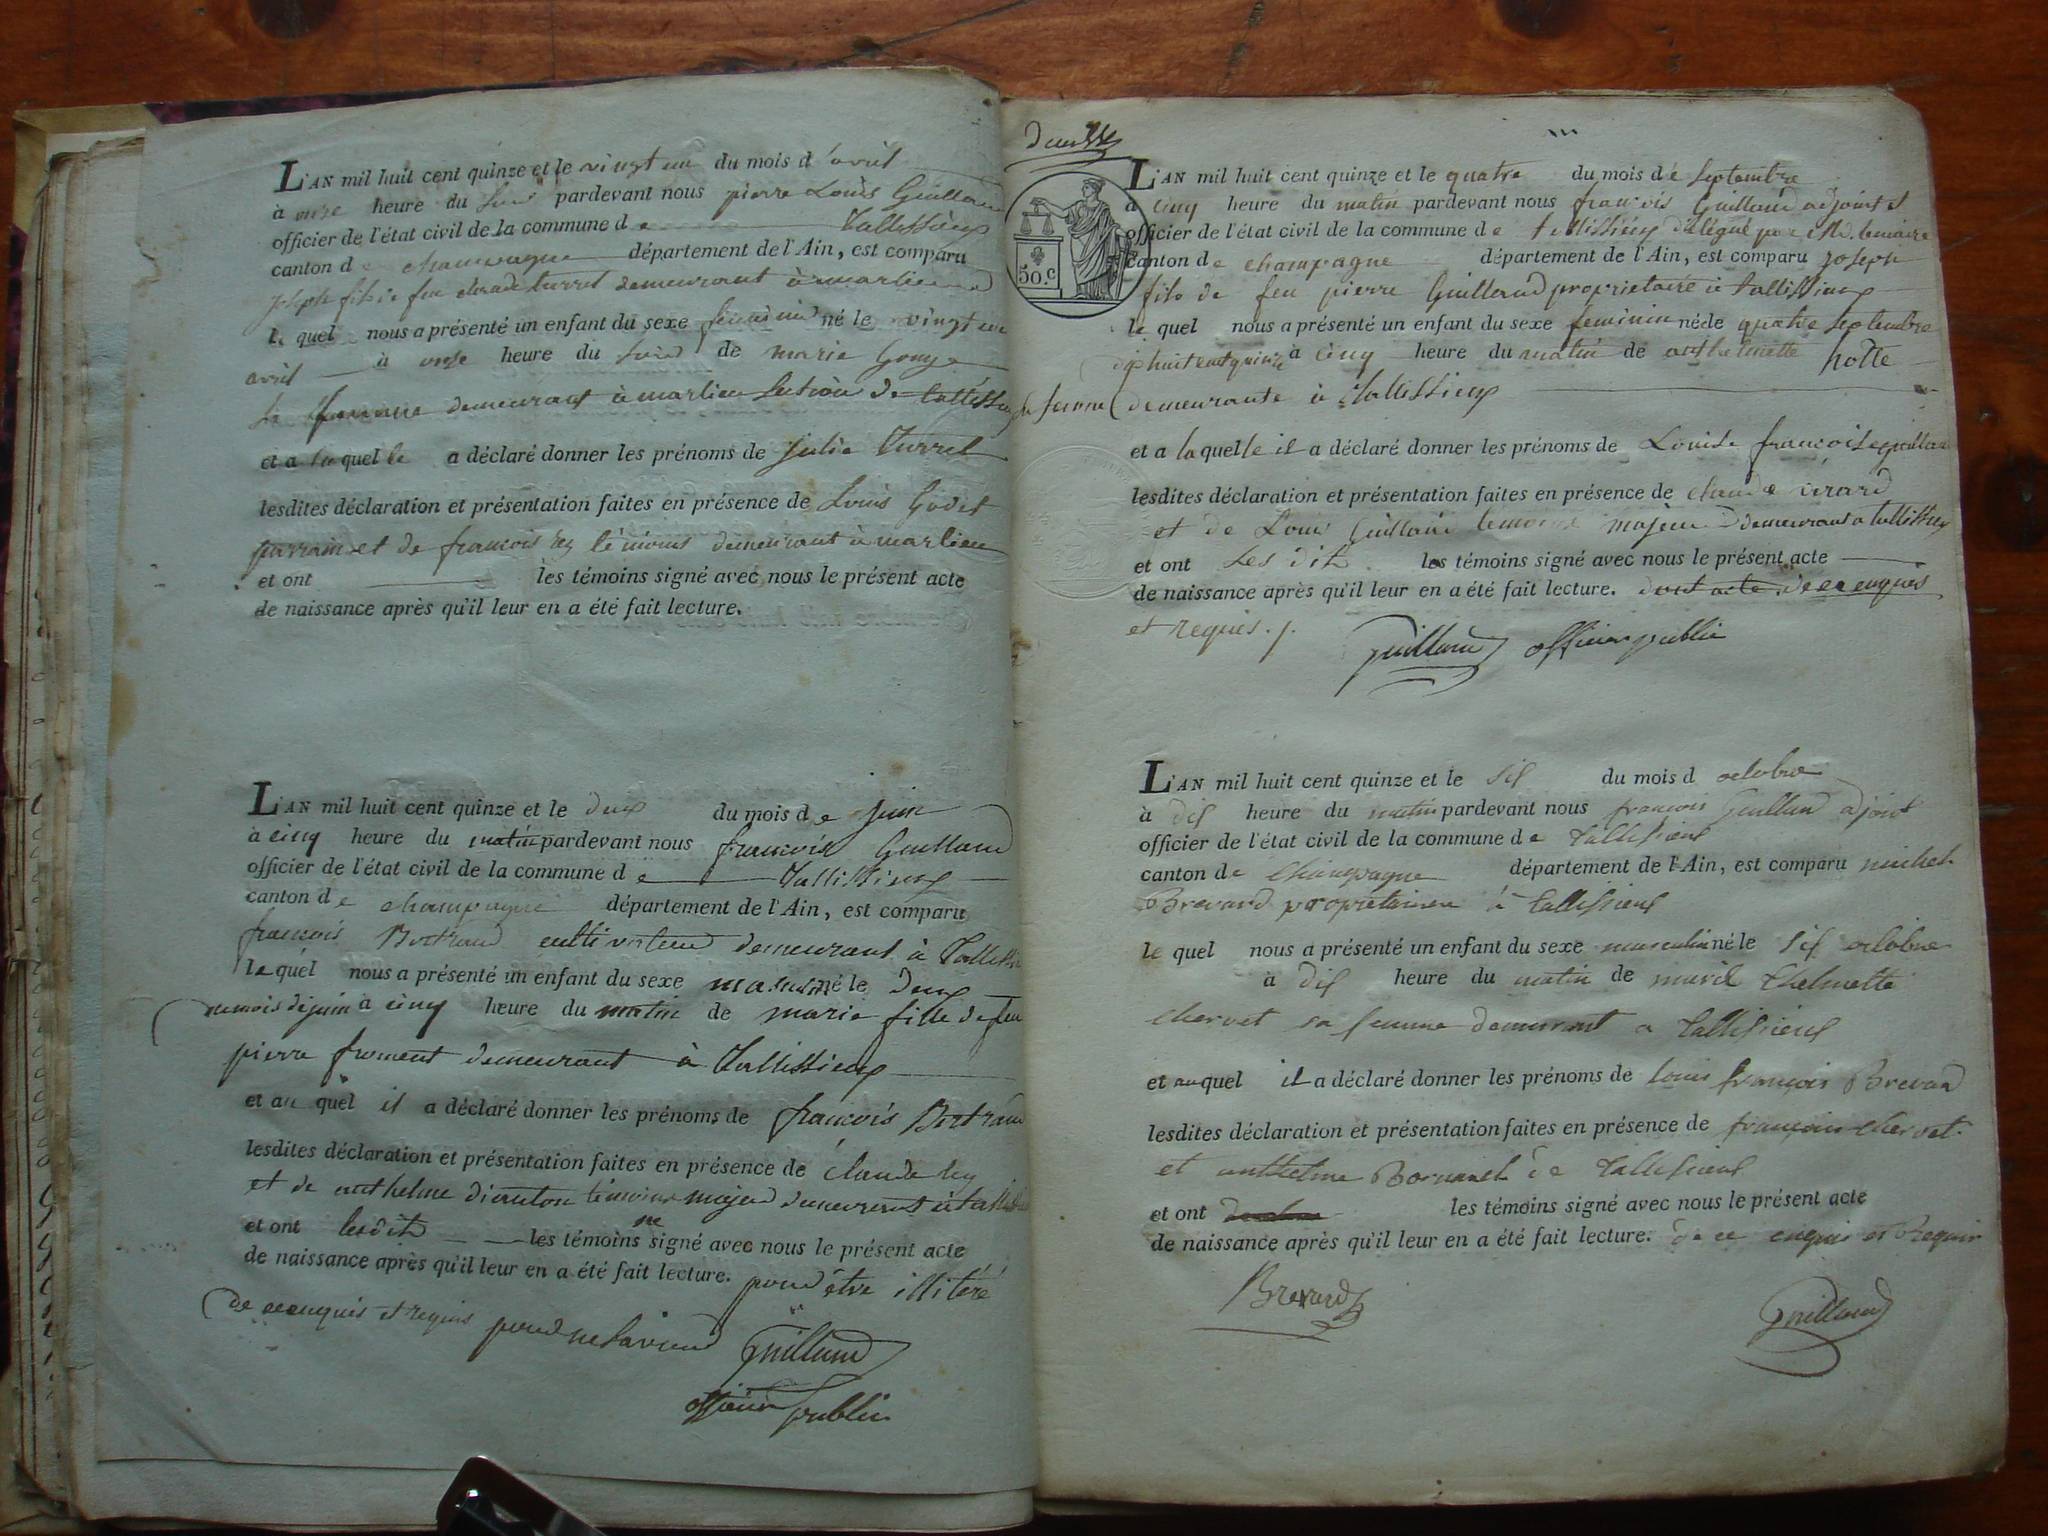 L'AN mil huit cent quinze et le vingt un du mois d'avril
à onze heure du soir pardevant nous pierre Louis Guilland
officier de l'état civil de la commune de Tallissieux
canton de champagne département de l'Ain, est comparu
joseph fils de feu claude turrel demeurant à marlieu
le quel nous a présenté un enfant du sexe feminin né le vingt un
avril à onze heure du soir de marie Gouge
sa femme demeurant à marlieu section de tallissieux
et a laquelle a déclaré donner les prénoms de julie turrel
lesdites déclaration et présentation faites en présence de Louis Godet
parrain et de francois rey témoins demeurant à marlieu
et ont les témoins signé avec nous le présent acte
de naissance après qu'il leur en a été fait lecture.
L'AN mil huit cent quinze et le deux du mois de juin
à cinq heure du matin pardevant nous francois Guilland
officier de l'état civil de la commune de Tallissieux
canton de champagne département de l'Ain, est comparu
francois Bertrand cultivateur demeurant à Tallissie
le quel nous a présenté un enfant du sexe masculin né le Deux
du mois de juin à cinq heure du matin de marie fille de feu
pierre froment demeurant à Tallissieux
et au quel il a déclaré donner les prénoms de francois Bertrand
lesdites déclaration et présentation faites en présence de claude rey
et de anthelme témoins majeur demeurant à
et ont lesdit les témoins ne signé avec nous le présent acte
de naissance après qu'il leur en a été fait lecture. pour être illitéré
de ce enquis et requis pour ne savoir Guilland
officier public
50.c
L'AN mil huit cent quinze et le quatre du mois de septembre
à cinq heure du matin pardevant nous francois Guilland adjoint
officier de l'état civil de la commune de tallissieux délégué par Md. lemaire
canton de champagne département de l'Ain, est comparu joseph
fils de feu pierre Guilland proprietaire à tallissieux
le quel nous a présenté un enfant du sexe feminin né le quatre septembre
dix huit cent quinze à cinq heure du matin de anthelmette hotte
sa femme demeurante à Tallissieux
et a laquelle il a déclaré donner les prénoms de Louise françoise guilland
lesdites déclaration et présentation faites en présence de claude
et de Louis Guilland temoins majeur demeurant a tallissieux
et ont Les dit les témoins signé avec nous le présent acte
de naissance après qu'il leur en a été fait lecture. dont acte de ce enquis
et requis./. Guilland officier public
L'AN mil huit cent quinze et le six du mois d octobre
à dix heure du matin pardevant nous francois Guilland adjoint
officier de l'état civil de la commune de tallisieux
canton de champagne département de l'Ain, est comparu michel
Brevard proprietaire à tallisieux
le quel nous a présenté un enfant du sexe masculin né le six octobre
à dix heure du matin de marie thelmette
chervet sa femme demeurant a tallisieux
et auquel il a déclaré donner les prénoms de louis françois Brevard
lesdites déclaration et présentation faites en présence de françois chervet
et anthelme de tallisieux
et ont les témoins signé avec nous le présent acte
de naissance après qu'il leur en a été fait lecture. de ce enquis et Requis
Brevard Guilland